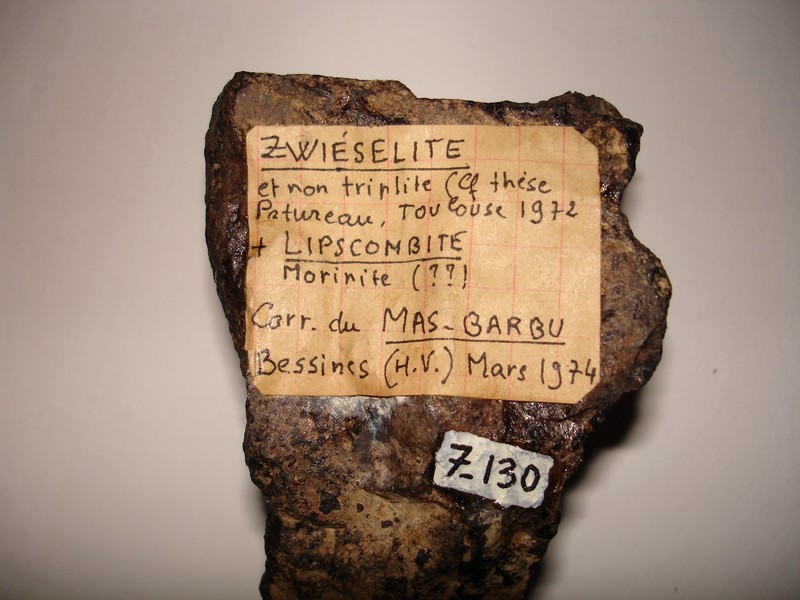 ZWIÉSELITE
et non triplite (cf thèse
Patureau, Toulouse 1972
+ LIPSCOMBITE
Morinite (??)
Carr. du MAS-BARBU
Bessines (H.V.) Mars 1974
Z-130